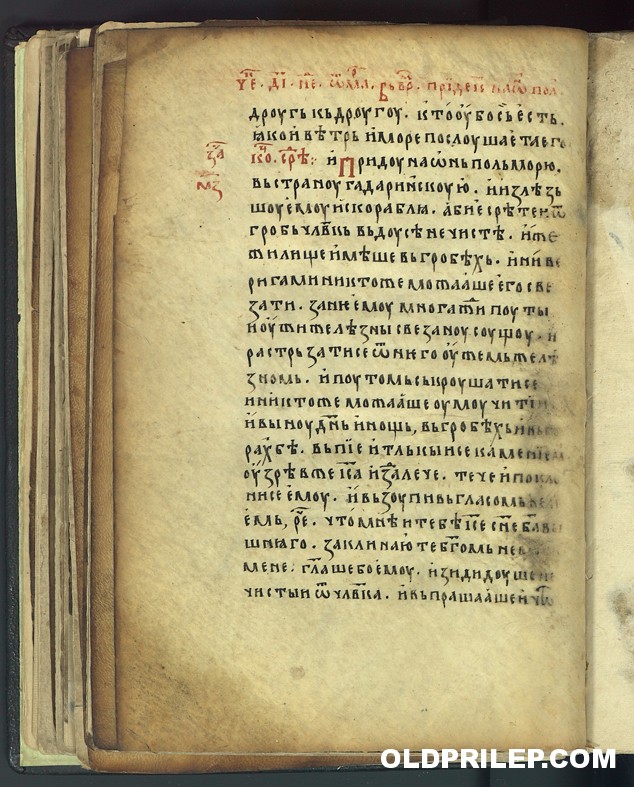 дроугь кь дроугоу. кто оубо сь есть.
ꙗко и вѣтрь и море послоушает его
за҃ ко҃. срѣ҃: и Придоу на ѡнь поль морю.
м҃з вь страноу гадаринскоую. и излѣзь
шоу емоу ис корабла. абие срѣте и ѿ
гробь чл҃вкь вь доусѣ нечистѣ. иже
жилище имѣше вь гробѣхь. и ни ве
ригами никтоже можааше его све
зати. зане емоу многажи поуты
и оужи желѣзны свезаноу соущоу. и
растрьзати се ѿ него оужемь желѣ
зномь. и поутомь ськроушати се
и никтоже можааше оумоучити
и выноу дн҃ь и нощь, вь гробѣхь и вь
рахь бѣ. вьпїе и тлькы се каменїем
оузрѣв же іс҃а из далече. тече и покло
ни се емоу. и вьзоупи вь гласомь
емь, ре҃. что мнѣ и тебѣ іс҃е сн҃е б҃а в
шнꙗго. заклинаю те б҃гомь не
мене. гл҃аше бо емоу. изиди доуше не
чистыи ѿ чл҃вка. и вьпрашааше и
OLDPRILEP.COM